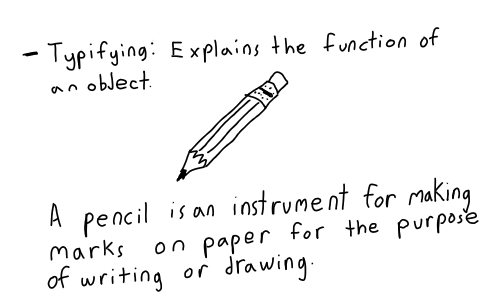 - Typifying: Explains the function of
an object.
A pencil is an instrument for making
marks on paper for the purpose
of writing or drawing.